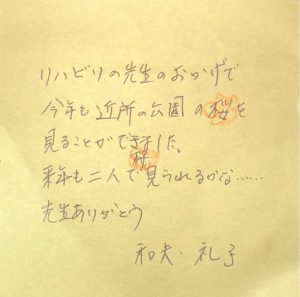 リハビリの先生のおかげで
今年も近所の公園の桜を
見ることができました。
桜
来年も二人で見られるかな……
先生ありがとう
和夫・礼子